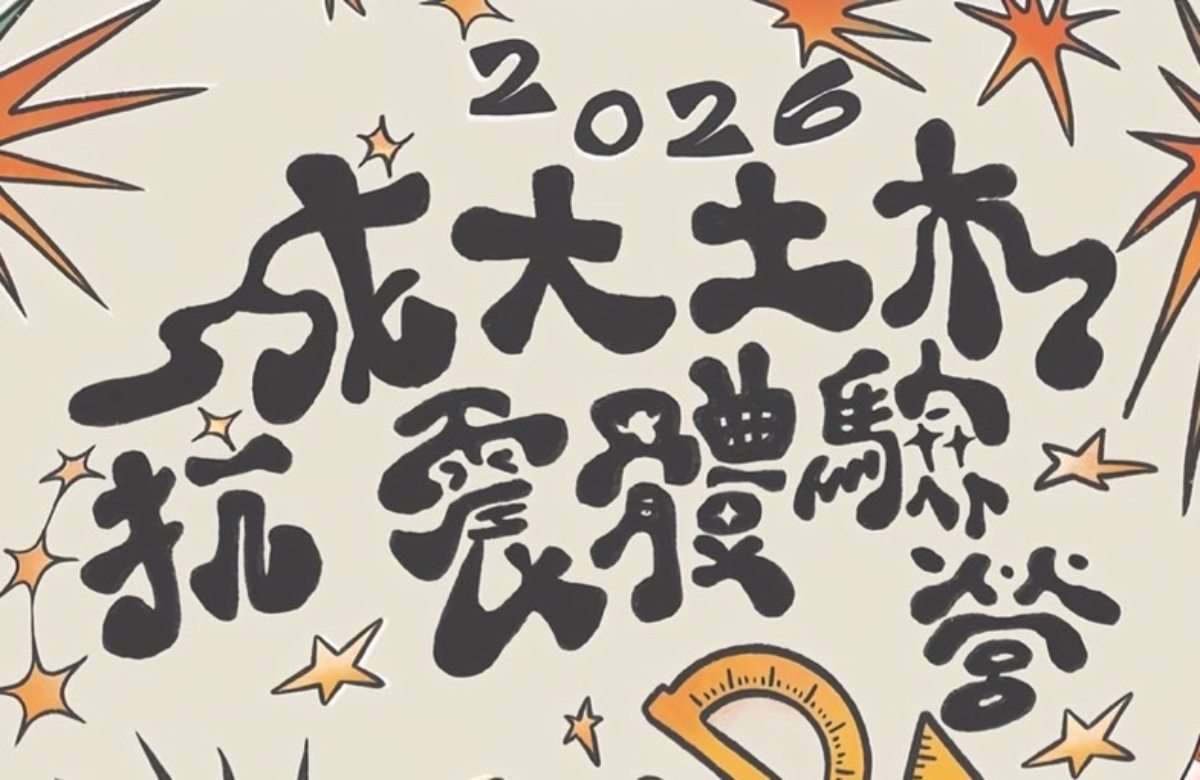 2026
成大土木
抗震體驗
營